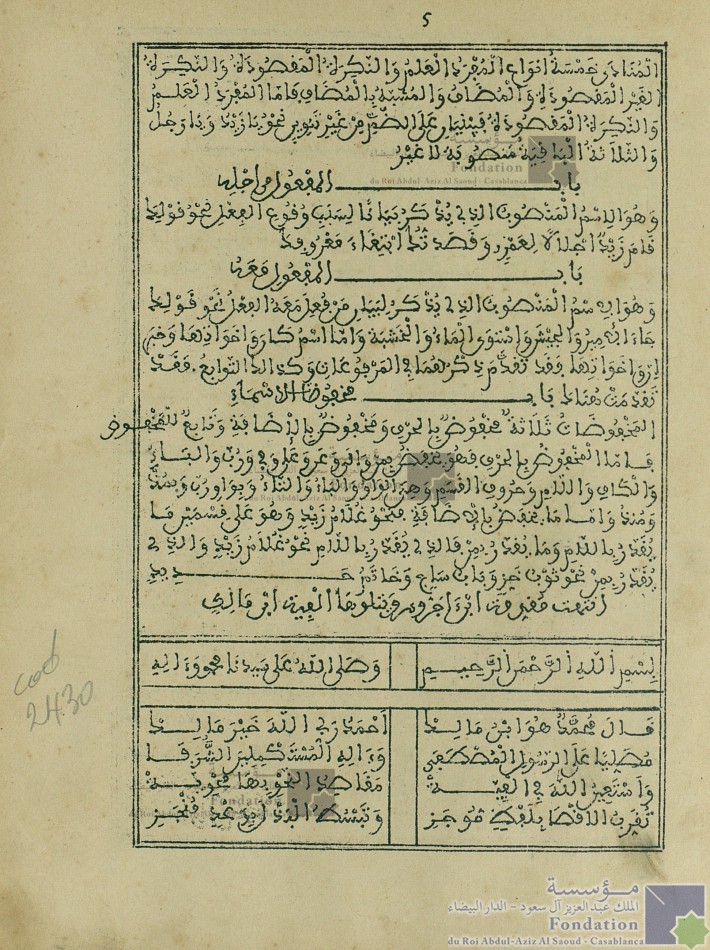 5
المُنَادَى خَمْسَةُ أنواع المُفْرَدُ العَلَمُ وَالنَّكِرَةُ المَقْصُودَةُ وَالنَّكِرَةُ
الغَيْرُ المَقْصُودَةِ وَالمُضَافُ وَالمُشَبَّهُ بِالمُضَافِ فَامَّا المُفْرَدُ العَلَمُ
وَالنَّكِرَةُ المَقْصُودَةُ فَيُبْنَيَانِ عَلَى الضَّمِّ مِنْ غَيْرِ تَنْوِينٍ نَحْوُ يَا زَيْدُ وَيَا رَجُلُ
وَالثَّلَاثَةُ البَاقِيَةُ مَنْصُوبَةٌ لَا غَيْرُ
باب المفعول من اجله
وَهُوَ الِاسْمُ المَنْصُوبُ الذِي يُذْكَرُ بَيَانًا لِسَبَبِ وُقُوعِ الفِعْلِ نَحْوُ قَوْلِكَ
قَامَ زَيْدٌ اجْلَالًا لِعَمْرٍو وَقَصَدْتُكَ ابْتِغَاءَ مَعْرُوفِكَ
باب المفعول معه
وَهُوَ الِاسْمُ المَنْصُوبُ الذِي يُذْكَرُ لِبَيَانِ مَنْ فُعِلَ مَعَهُ الفِعْلُ نَحْوُ قَوْلِكَ
جَاءَ الأَمِيرُ وَالجَيْشَ وَاسْتَوَى المَاءُ وَالخَشَبَةَ وَامَّا اسْمُ كَانَ وَاخَوَاتِهَا وَخَبَرُ
إِنَّ وَاخَوَاتِهَا فَقَدْ تَقَدَّمَ ذِكْرُهُمَا فِي المَرْفُوعَاتِ وَكَذَلِكَ التَّوَابِعُ فَقَدْ
تَقَدَّمَتْ هُنَاكَ باب مخفوضات الاسماء
المَخْفُوضَاتُ ثَلَاثَةٌ مَخْفُوضٌ بِالحَرْفِ وَمَخْفُوضٌ بِالإِضَافَةِ وَتَابِعٌ لِلْمَخْفُوضِ
فَامَّا المَخْفُوضُ بِالحَرْفِ فَهُوَ مَا يُخْفَضُ بِمِنْ وَإِلَى وَعَنْ وَعَلَى وَفِي وَرُبَّ وَالبَاءِ
وَالكَافِ وَاللَّامِ وَحُرُوفِ القَسَمِ وَهِيَ الوَاوُ وَالبَاءُ وَالتَّاءُ وَبِوَاوِ رُبَّ وَبِمُذْ
وَمُنْذُ وَامَّا مَا يُخْفَضُ بِالإِضَافَةِ فَنَحْوُ غُلَامُ زَيْدٍ وَهُوَ عَلَى قِسْمَيْنِ مَا
يُقَدَّرُ بِاللَّامِ وَمَا يُقَدَّرُ بِمِنْ فَالذِي يُقَدَّرُ بِاللَّامِ نَحْوُ غُلَامُ زَيْدٍ وَالذِي
يُقَدَّرُ بِمِنْ نَحْوُ ثَوْبُ خَزٍّ وَبَابُ سَاجٍ وَخَاتَمُ حَدِيدٍ
انتهت مقدمة ابن اجروم ويتلوها الفية ابن مالك
بِسْمِ اللَّهِ الرَّحْمَنِ الرَّحِيمِ وَصَلَّى اللَّهُ عَلَى سيدنا محمد وءاله
قَالَ مُحَمَّدٌ هُوَ ابْنُ مَالِكِ احْمَدُ رَبِّي اللَّهَ خَيْرَ مَالِكِ
مُصَلِّيًا عَلَى الرَّسُولِ المُصْطَفَى وَءَالِهِ المُسْتَكْمِلِينَ الشَّرَفَا
وَاسْتَعِينُ اللَّهَ فِي الفِيَّهْ مَقَاصِدُ النَّحْوِ بِهَا مَحْوِيَّهْ
تُقَرِّبُ الاقْصَى بِلَفْظٍ مُوجَزِ وَتَبْسُطُ البَذْلَ بِوَعْدٍ مُنْجَزِ
cod
2430
مؤسسة
الملك عبد العزيز آل سعود - الدار البيضاء
Fondation
du Roi Abdul-Aziz Al Saoud - Casablanca